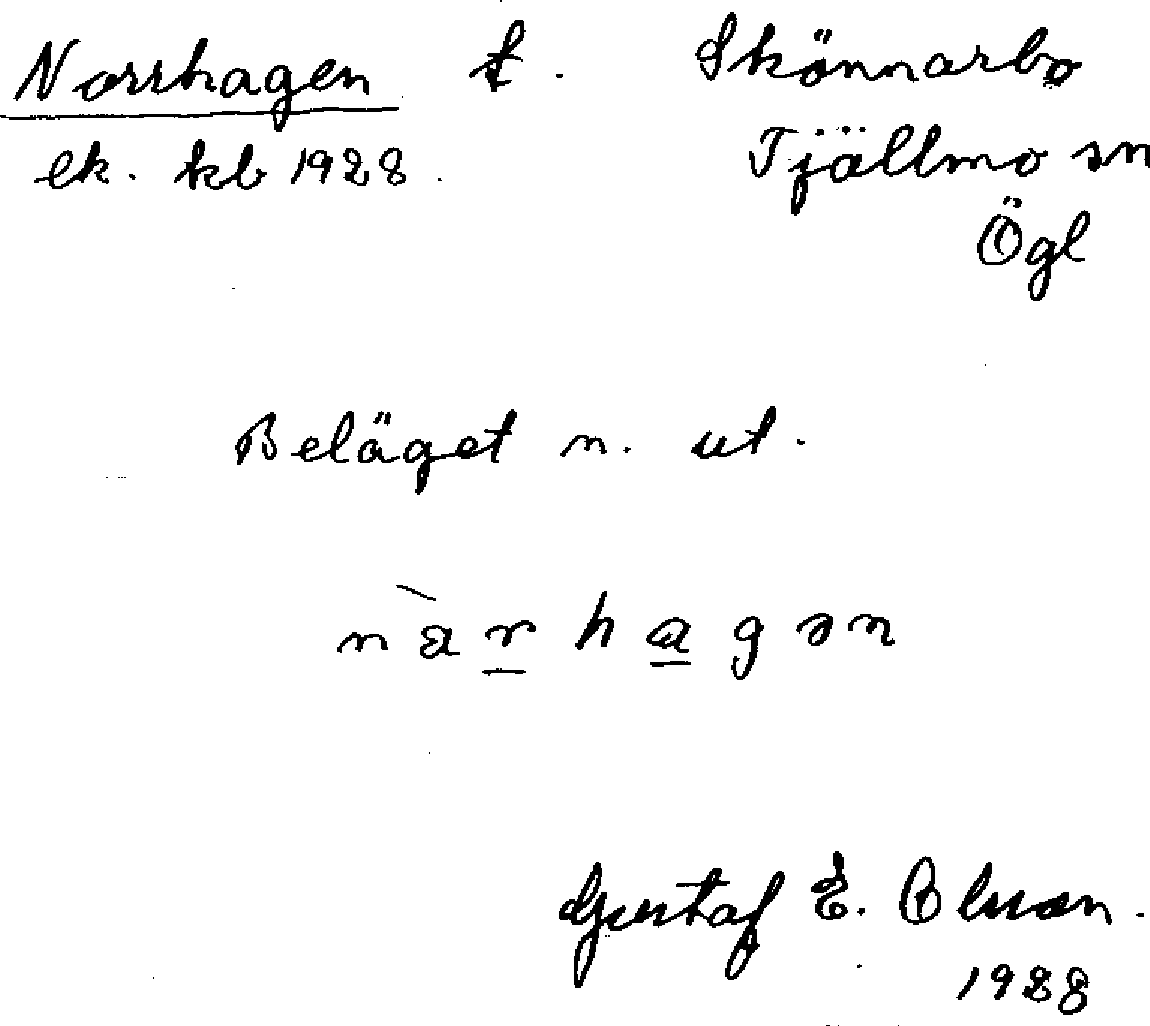 Norrhagen t. Skönnarbo
ek. kb 1928. Tjällmo sn
Ögl
Beläget n. ut.
nàrhagən
Gustaf E. Olsson.
1928